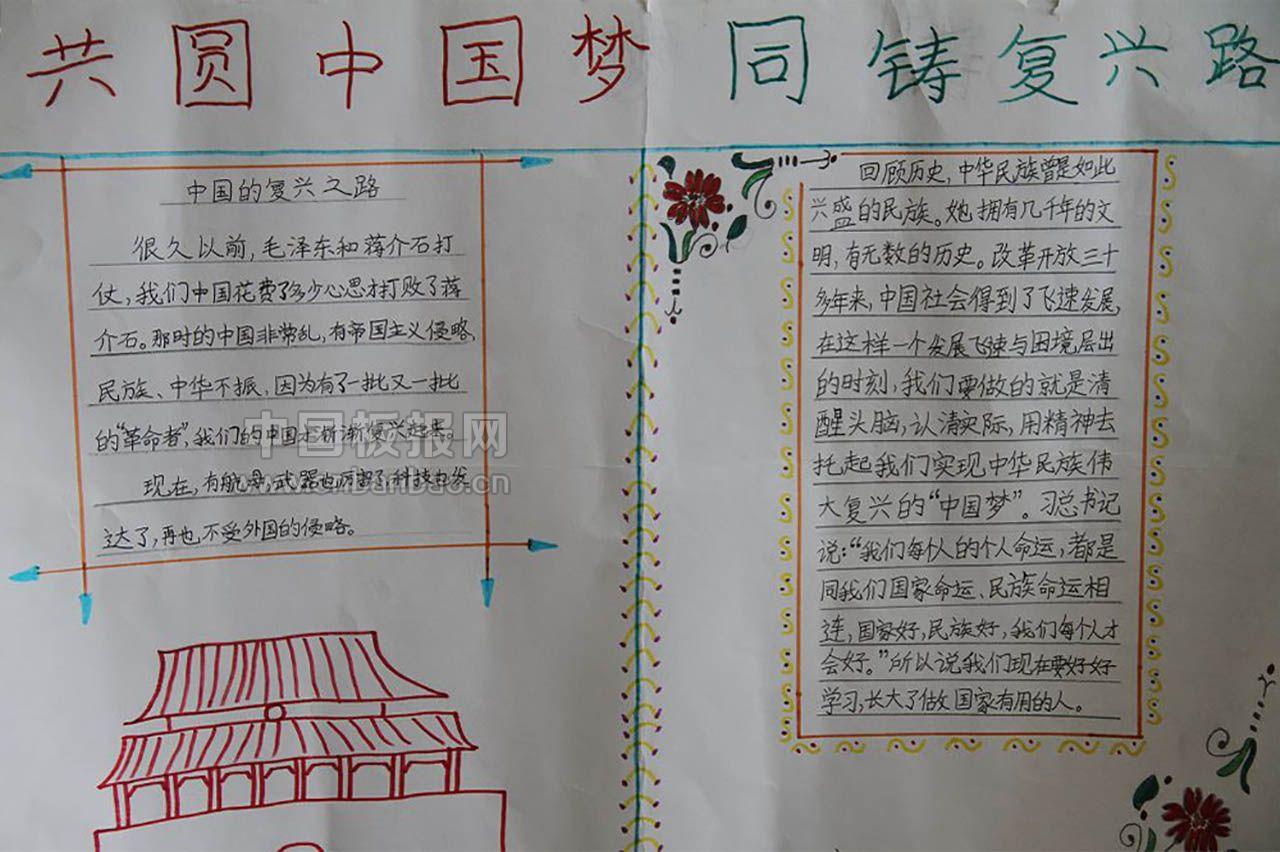 共圆中国梦 同铸复兴路
中国的复兴之路
很久以前,毛泽东和蒋介石打
仗,我们中国花费了多少心思才打败了蒋
介石。那时的中国非常乱,有帝国主义侵略,
民族、中华不振,因为有了一批又一批
的“革命者”,我们的中国才渐渐复兴起来。
现在,有航母,武器也厉害了,科技也发
达了,再也不受外国的侵略。
回顾历史,中华民族曾是如此
兴盛的民族。她拥有几千年的文
明,有无数的历史。改革开放三十
多年来,中国社会得到了飞速发展,
在这样一个发展飞速与困境层出
的时刻,我们要做的就是清
醒头脑,认清实际,用精神去
托起我们实现中华民族伟
大复兴的“中国梦”。习总书记
说:“我们每个人的个人命运,都是
同我们国家命运、民族命运相
连,国家好,民族好,我们每个人才
会好。”所以说我们现在要好好
学习,长大了做国家有用的人。
中国板报网
www.cnBanBao.cn